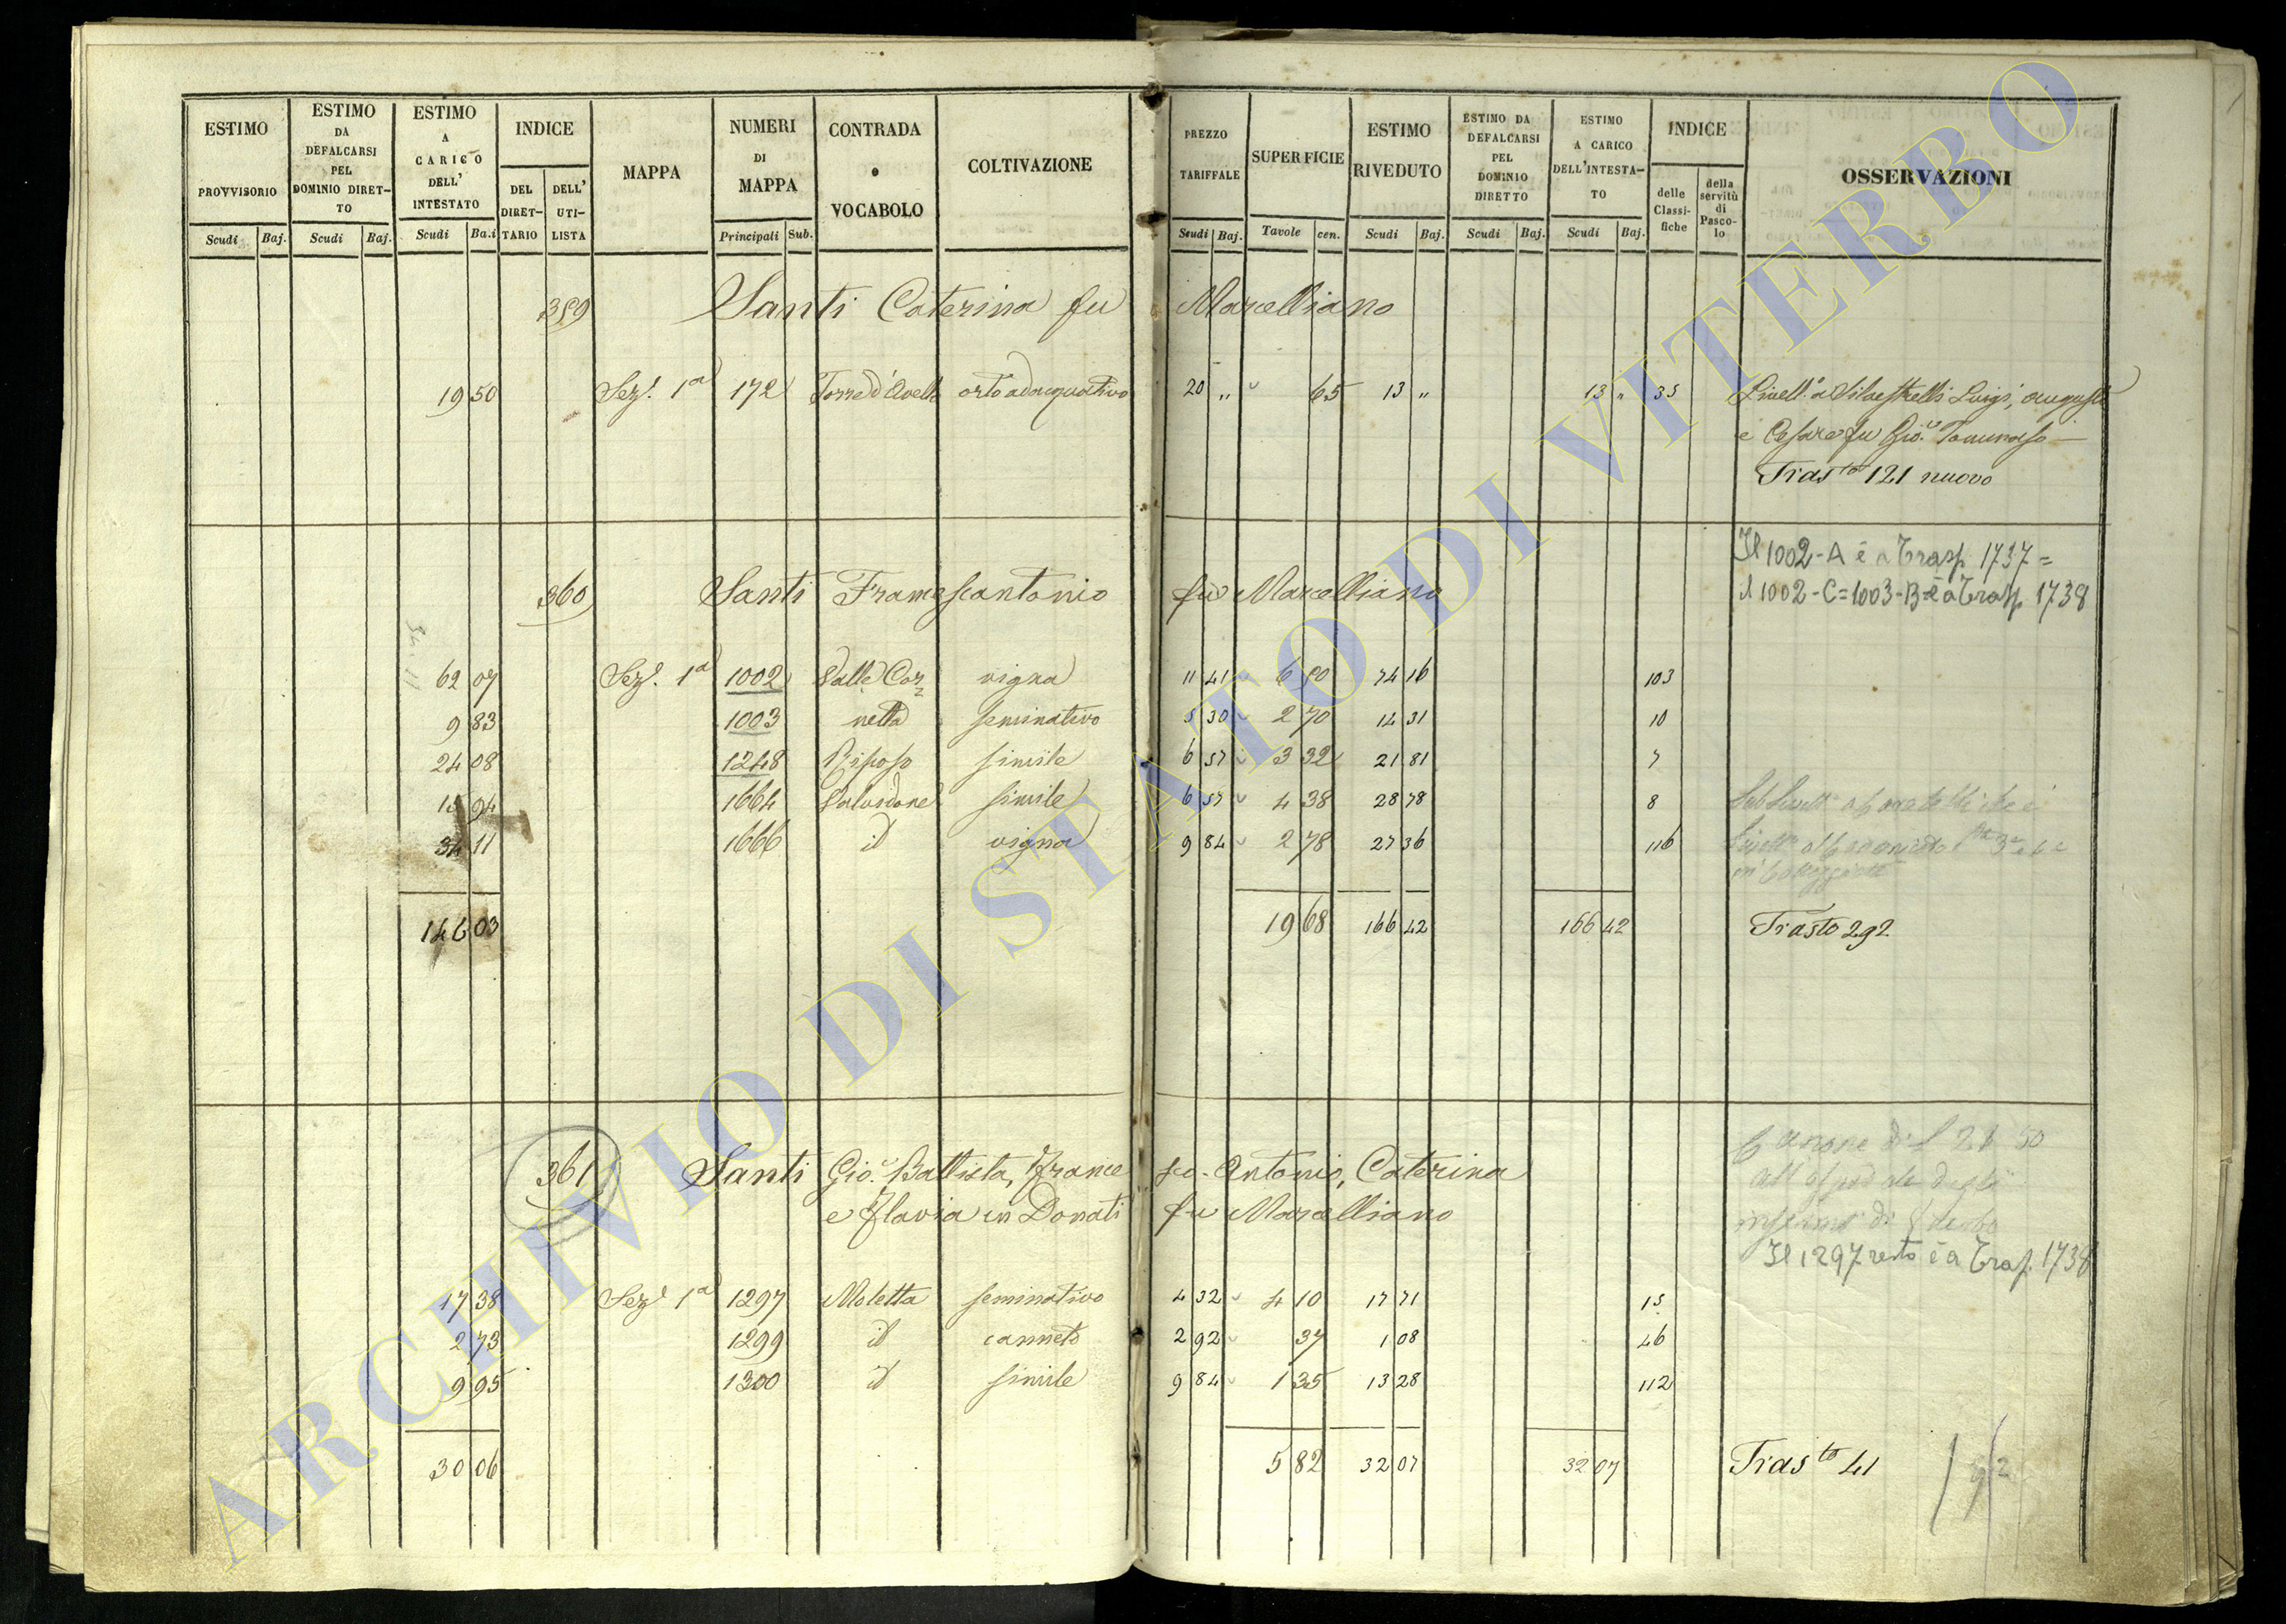 ESTIMO PROVVISORIO Scudi Baj.
ESTIMO DA DEFALCARSI PEL DOMINIO DIRET-TO Scudi Baj.
ESTIMO A CARICO DELL' INTESTATO Scudi Ba.i
INDICE DEL DIRET-TARIO DELL' UTI-LISTA
MAPPA
NUMERI DI MAPPA Principali Sub.
CONTRADA o VOCABOLO
COLTIVAZIONE
PREZZO TARIFFALE Scudi Baj.
SUPERFICIE Tavole cen.
ESTIMO RIVEDUTO Scudi Baj.
ESTIMO DA DEFALCARSI PEL DOMINIO DIRETTO Scudi Baj.
ESTIMO A CARICO DELL'INTESTA-TO Scudi Baj.
INDICE delle Classi-fiche della servitù di Pasco-lo
OSSERVAZIONI
359 Santi Caterina fu Marcelliano
19 50 Sez. 1a 172 orto adacquativo 20 „ 65 13 „ 13 „ 35 Livell. a Silvestrelli Luigi, Augusto
e Cesare fu Gio. Tommaso
Tras.to 121 nuovo
Il 1002-A è a Trasp. 1737 =
il 1002-C=1003-B=è a Trasp. 1738
360 Santi Francescantonio fu Marcelliano
62 07 Sez. 1a 1002 Valle Cor= vigna 11 41 6 50 74 16 103
9 83 1003 netta seminativo 5 30 2 70 14 31 10
24 08 1248 Riposo simile 6 57 3 32 21 81 7
15 94 1664 simile 6 57 4 38 28 78 8
34 11 1666 id vigna 9 84 2 78 27 36 116
146 03 19 68 166 42 166 42 Trasto 292
Canone di
all ospedale degli
infermi di
361 Santi Gio. Battista, France sco-Antonio, Caterina
e Flavia in Donati fu Marcelliano
Il 1297 resto è a Trasp. 1738
17 38 Sez. 1a 1297 Moletta seminativo 4 32 4 10 17 71 15
2 73 1299 id canneto 2 92 37 1 08 46
9 95 1300 id simile 9 84 1 35 13 28 112
30 06 5 82 32 07 32 07 Tras.to 41
ARCHIVIO DI STATO DI VITERBO